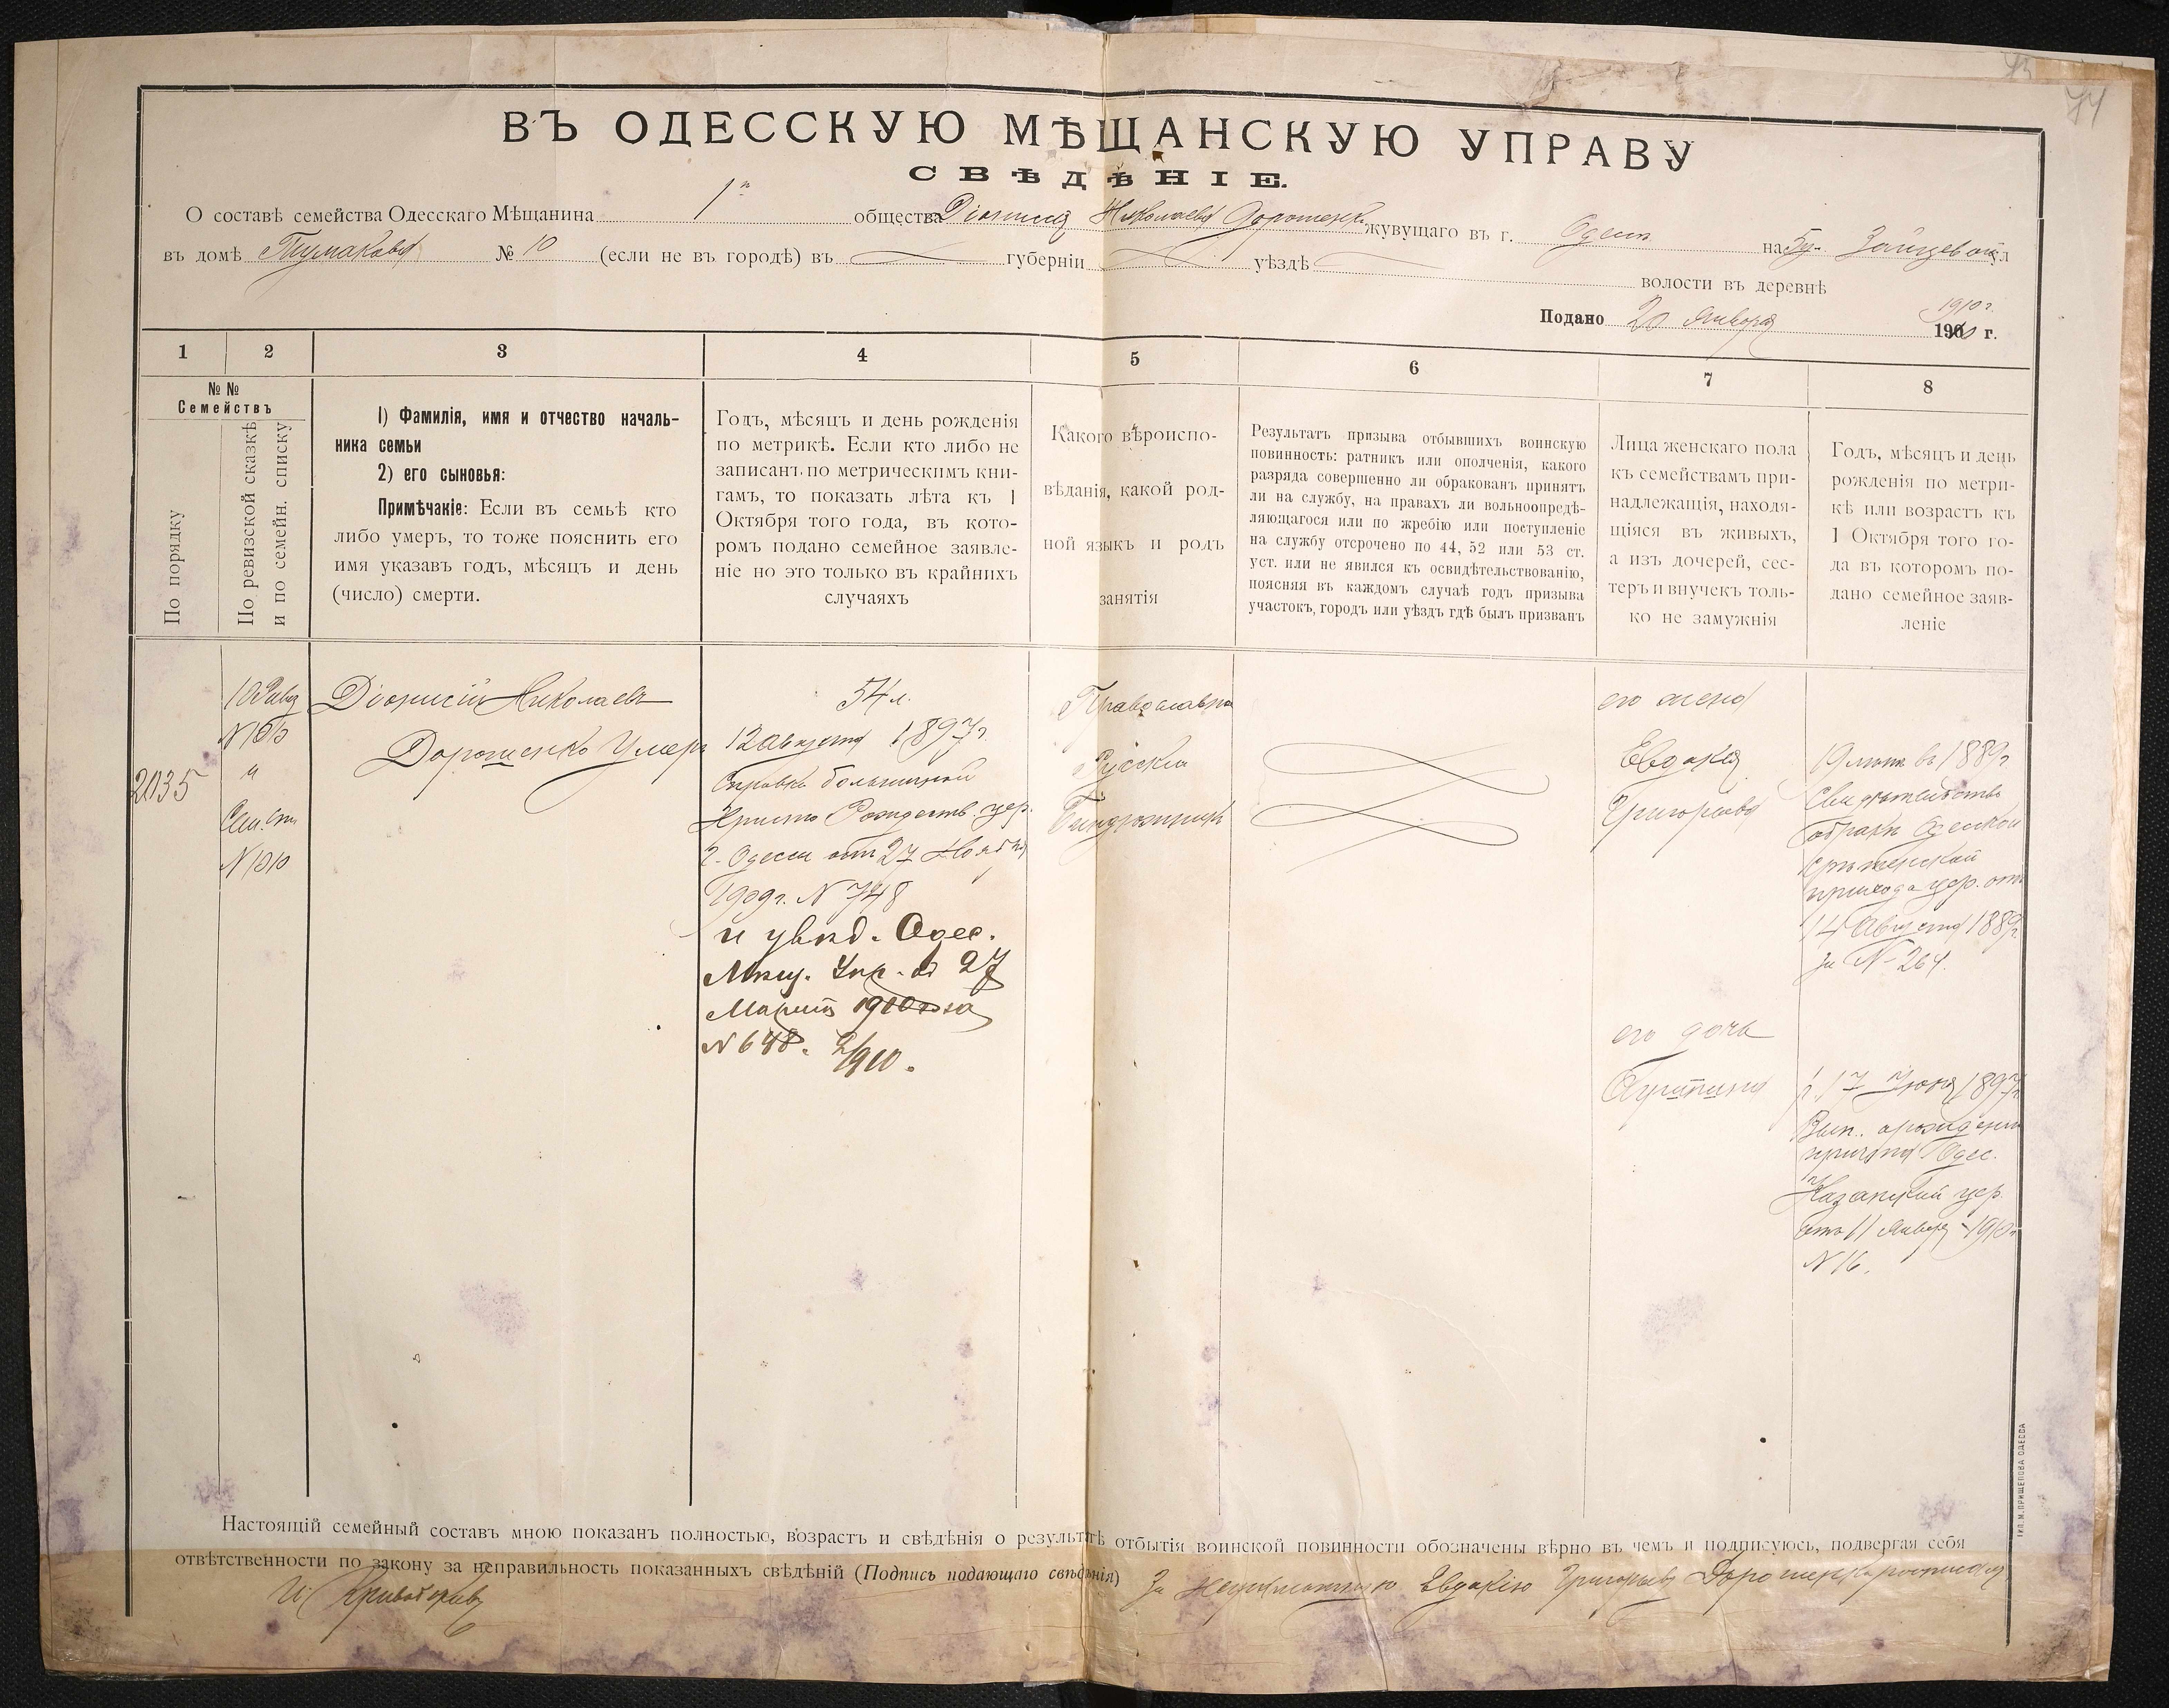 ВЪ ОДЕССКУЮ МѢЩАНСКУЮ УПРАВУ
СВѢДѢНІЕ.
О составѣ семейства Одесскаго Мѣщанина 1 общества Діонисія Николаева Дорошенко жувущаго въ г. Одессѣ
въ домѣ № 10 (если не въ городѣ) въ губерніи уѣздѣ
на ул
волости въ деревнѣ
Подано 20 Января 1910 г.
190 г.
1 2 3 4 5 6 7 8
№ №
Семействъ
По порядку
По ревизской сказкѣ
и по семейн. списку
1) Фамилія, имя и отчество началь-
ника семьи
2) его сыновья:
Примѣчакіе: Если въ семьѣ кто
либо умеръ, то тоже пояснить его
имя указавъ годъ, мѣсяцъ и день
(число) смерти.
Годъ, мѣсяцъ и день рожденія
по метрикѣ. Если кто либо не
записанъ по метрическимъ кни-
гамъ, то показать лѣта къ 1
Октября того года, въ кото-
ромъ подано семейное заявле-
ніе но это только въ крайнихъ
случаяхъ
Какого вѣроиспо-
вѣданія, какой род-
ной языкъ и родъ
занятія
Результатъ призыва отбывшихъ воинскую
повинность: ратникъ или ополченія, какого
разряда совершенно ли обракованъ принятъ
ли на службу, на правахъ ли вольноопредѣ-
ляющагося или по жребію или поступленіе
на службу отсрочено по 44, 52 или 53 ст.
уст. или не явился къ освидѣтельствованію,
поясняя въ каждомъ случаѣ годъ призыва
участокъ, городъ или уѣздъ гдѣ былъ призванъ
Лица женскаго пола
къ семействамъ при-
надлежащія, находя-
щіяся въ живыхъ,
а изъ дочерей, сес-
теръ и внучекъ толь-
ко не замужнія
Годъ, мѣсяцъ и день
рожденія по метри-
кѣ или возрастъ къ
1 Октября того го-
да въ которомъ по-
дано семейное заяв-
леніе
2035
N 1010
Діонисій Николаевъ
Дорошенко Умеръ
54 л.
12 августа 1897 г.
Справка больничной
Христо Рождеств. цер.
г. Одессы отъ 27 Ноября
1909 г. N 748
и увѣд. Одес.
Мѣщ. Упр. 27
Марта 1910 г. за
N 648.
Православна
Русскій
его жена
Евдокія
Григорьева
19 лѣтъ въ 1889 г.
Свидѣтельство
о бракѣ Одесской
Срѣтенской
прихода цер. отъ
14 Августа 1889 г.
за N 264.
его дочь
р. 17 Іюня 1897 г.
Вып. о рожденіи
причта Одес.
Казанской цер.
отъ 11 Января 1910 г.
N 16.
Настоящій семейный составъ мною показанъ полностью, возрастъ и свѣдѣнія о результатѣ отбытія воинской повинности обозначены вѣрно въ чемъ и подписуюсь, подвергая себя
отвѣтственности по закону за неправильность показанныхъ свѣдѣній (Подпись подающаго свѣдѣнія) За неграмотную Евдокію Григорьеву Дорошенко росписался
ТИП. М. ПРИЩЕПОВА ОДЕССА